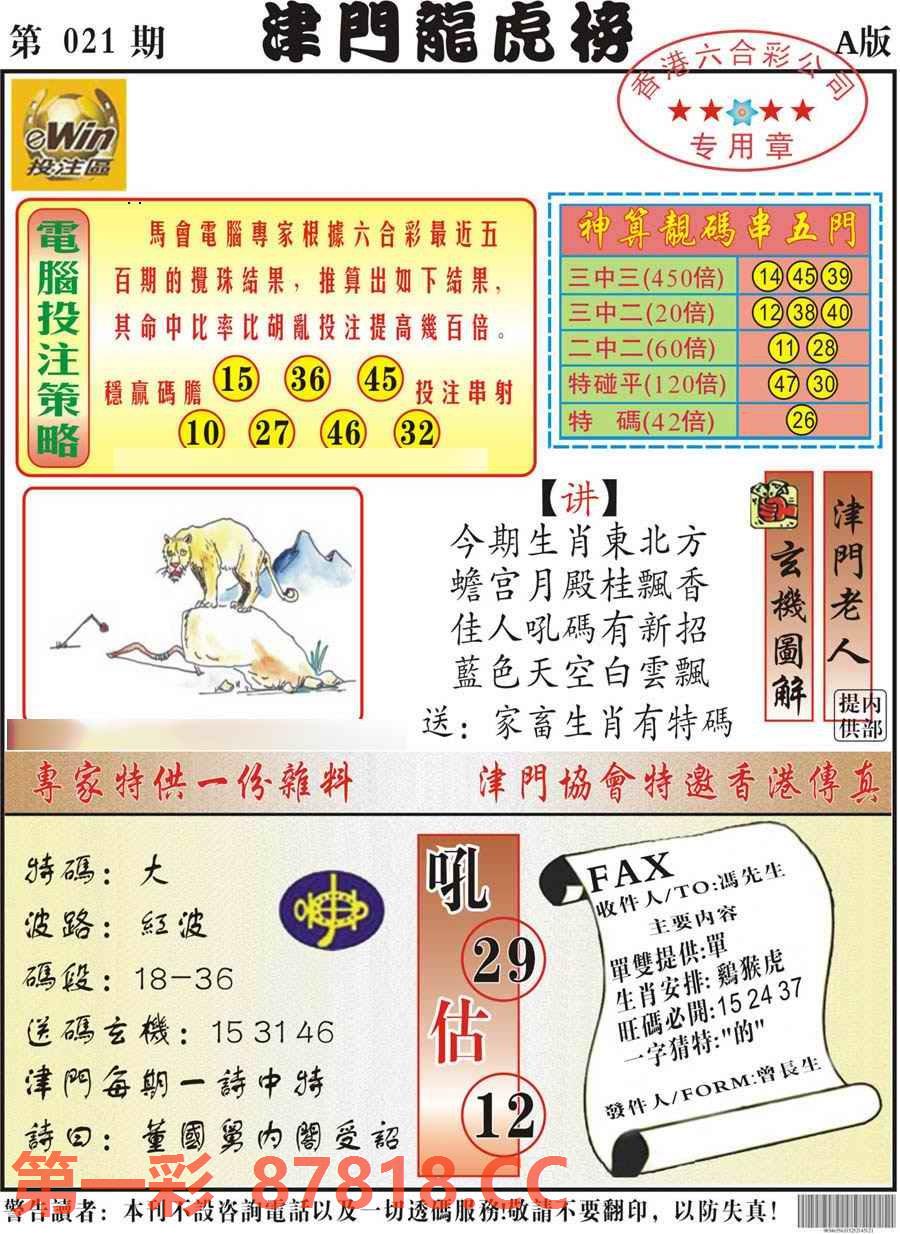 第 021 期
津門龍虎榜
A版
香港六合彩公司
专用章
eWin
投注區
電腦投注策略
馬會電腦專家根據六合彩最近五
百期的攪珠結果，推算出如下結果，
其命中比率比胡亂投注提高幾百倍。
穩贏碼膽 15 36 45 投注串射
10 27 46 32
神算靚碼串五門
三中三(450倍) 14 45 39
三中二(20倍) 12 38 40
二中二(60倍) 11 28
特碰平(120倍) 47 30
特 碼(42倍) 26
【讲】
今期生肖東北方
蟾宮月殿桂飄香
佳人吼碼有新招
藍色天空白雲飄
送：家畜生肖有特碼
玄機圖解
津門老人
内部提供
專家特供一份雜料
津門協會特邀香港傳真
特碼：大
波路：紅波
碼段：18-36
送碼玄機：15 31 46
津門每期一詩中特
詩曰：董國舅内閣受詔
吼
29
估
12
FAX
收件人/TO:馮先生
主要内容
單雙提供:單
生肖安排:鷄猴虎
旺碼必開:15 24 37
一字猜特:"的"
發件人/FORM:曾長生
第一彩 87818.CC
警告讀者：本刊不設咨詢電話以及一切透碼服務!敬請不要翻印，以防失真!